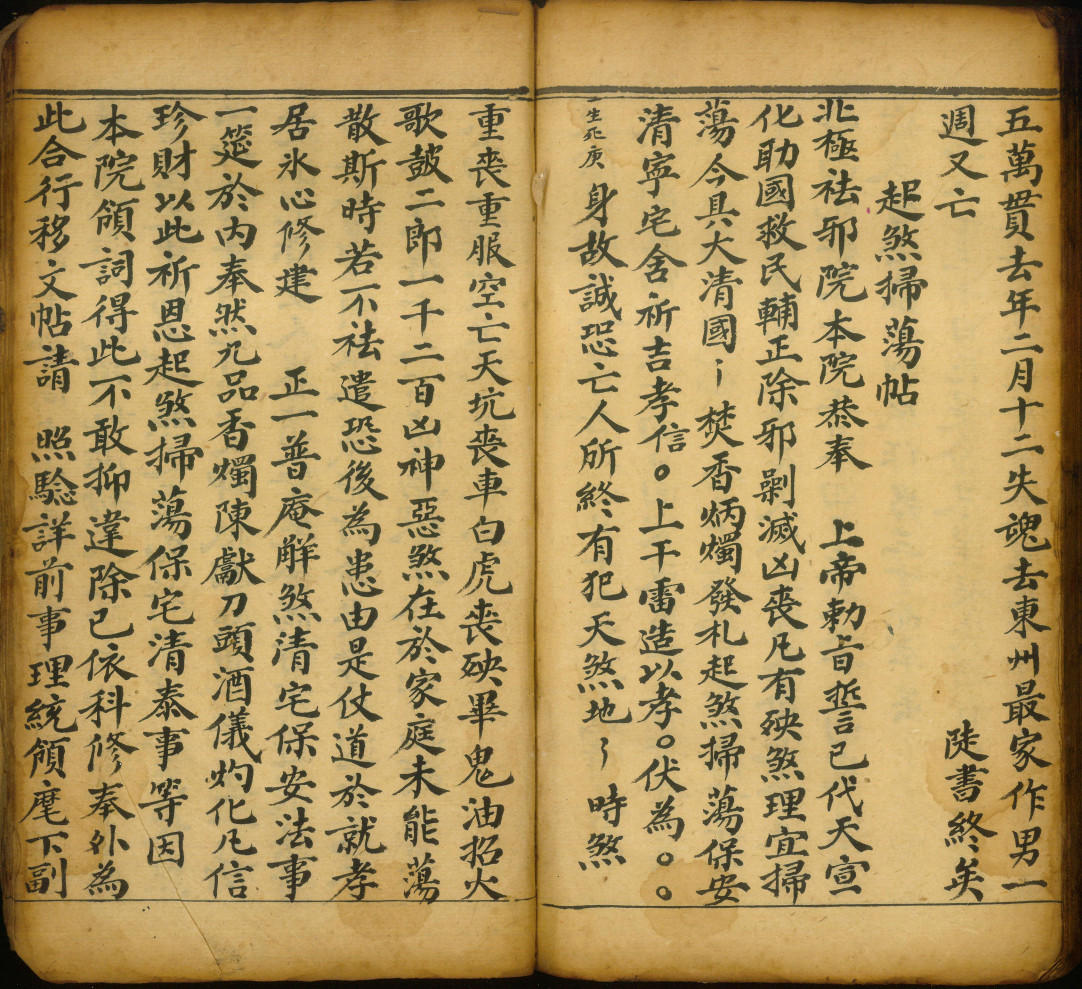 五萬貫去年二月十二失魂去東州最家作男一
週又亡　陡書終矣
起煞掃蕩帖
北極祛邪院本院恭奉　上帝勅旨誓已代天宣
化助國救民輔正除邪剿滅凶喪凡有殃煞理宜掃
蕩今具大清國〻焚香炳燭發札起煞掃蕩保安
清寧宅舍祈吉孝信。上干雷造以孝。伏為。。
一生死庚　身故誠恐亡人所終有犯天煞地〻時煞
重喪重服空亡天坑喪車白虎喪殃畢鬼油招火
歌鼓二郎一千二百凶神惡煞在於家庭未能蕩
散斯時若不祛遣恐後為患由是仗道於就孝
居氷心修建　正一普庵解煞清宅保安法事
一筵於內奉然九品香燭陳獻刀頭酒儀灼化凡信
珍財以此祈恩起煞掃蕩保宅清泰事等因
本院領詞得此不敢抑違除已依科修奉外為
此合行移文帖請　照騐詳前事理統領麾下副